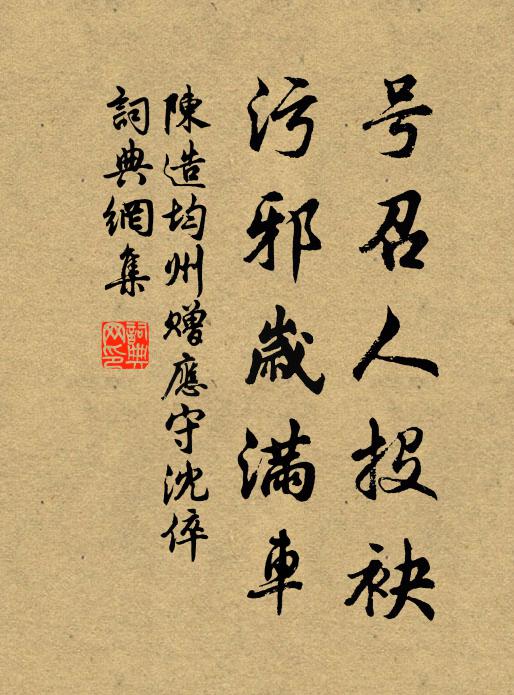 号召人投袂
污邪歲满車
陳造均州贈應守沈倅
詞典網集
詞典网印